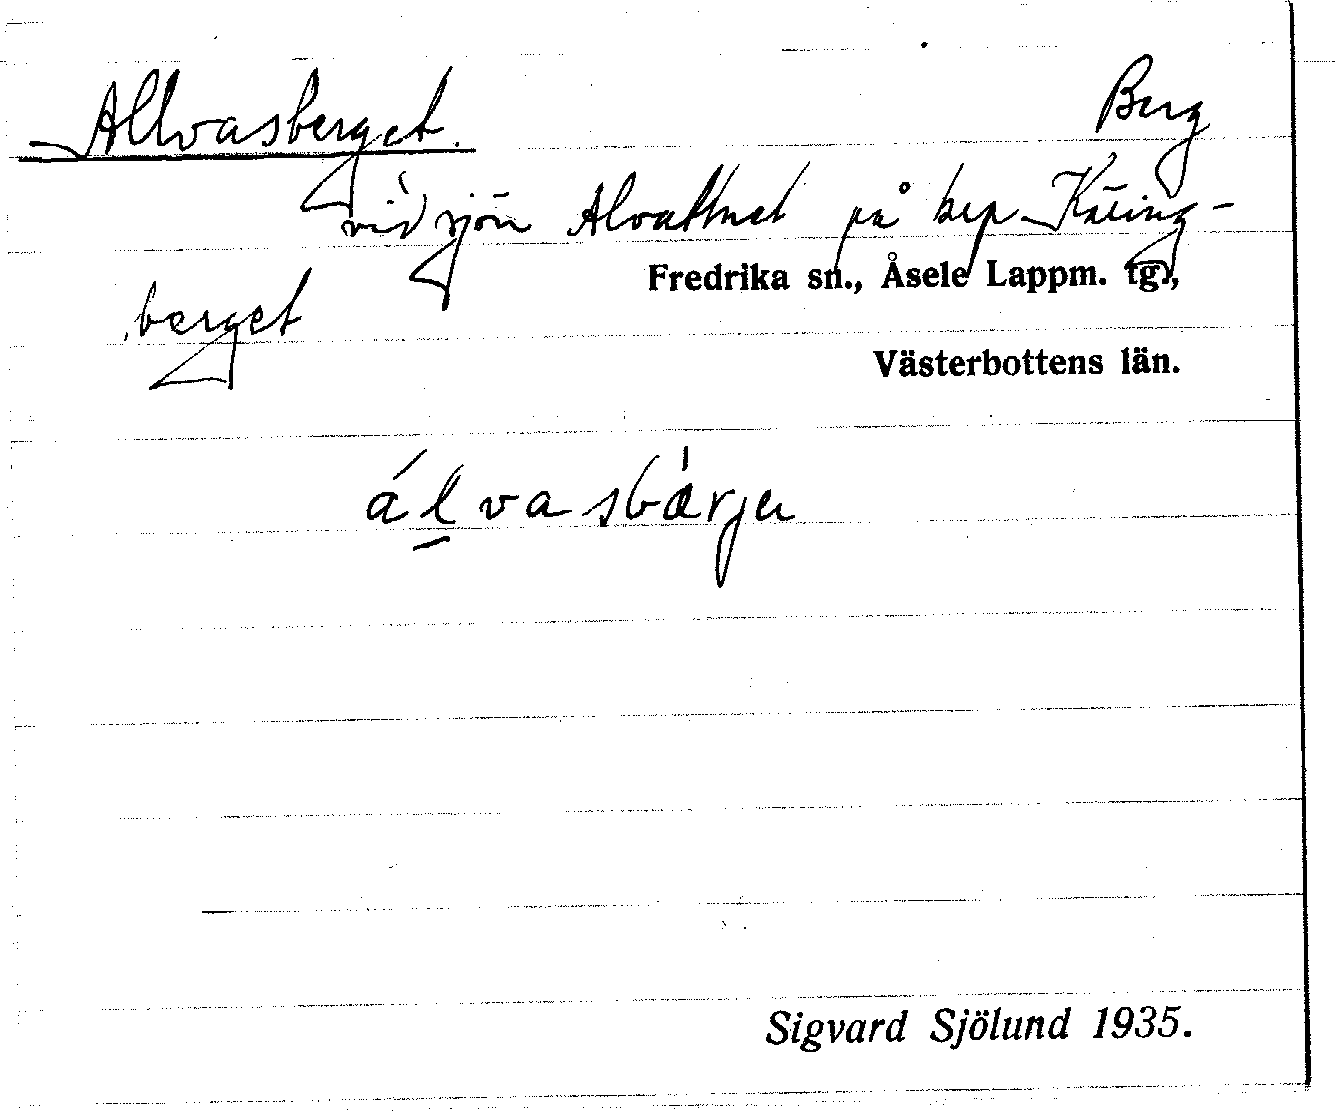 Allvasberget. Berg
vid sjön Alvattnet på krp Käring-
Fredrika sn., Åsele Lappm. tg.,
berget
Västerbottens län.
álvasbárjæ
Sigvard Sjölund 1935.